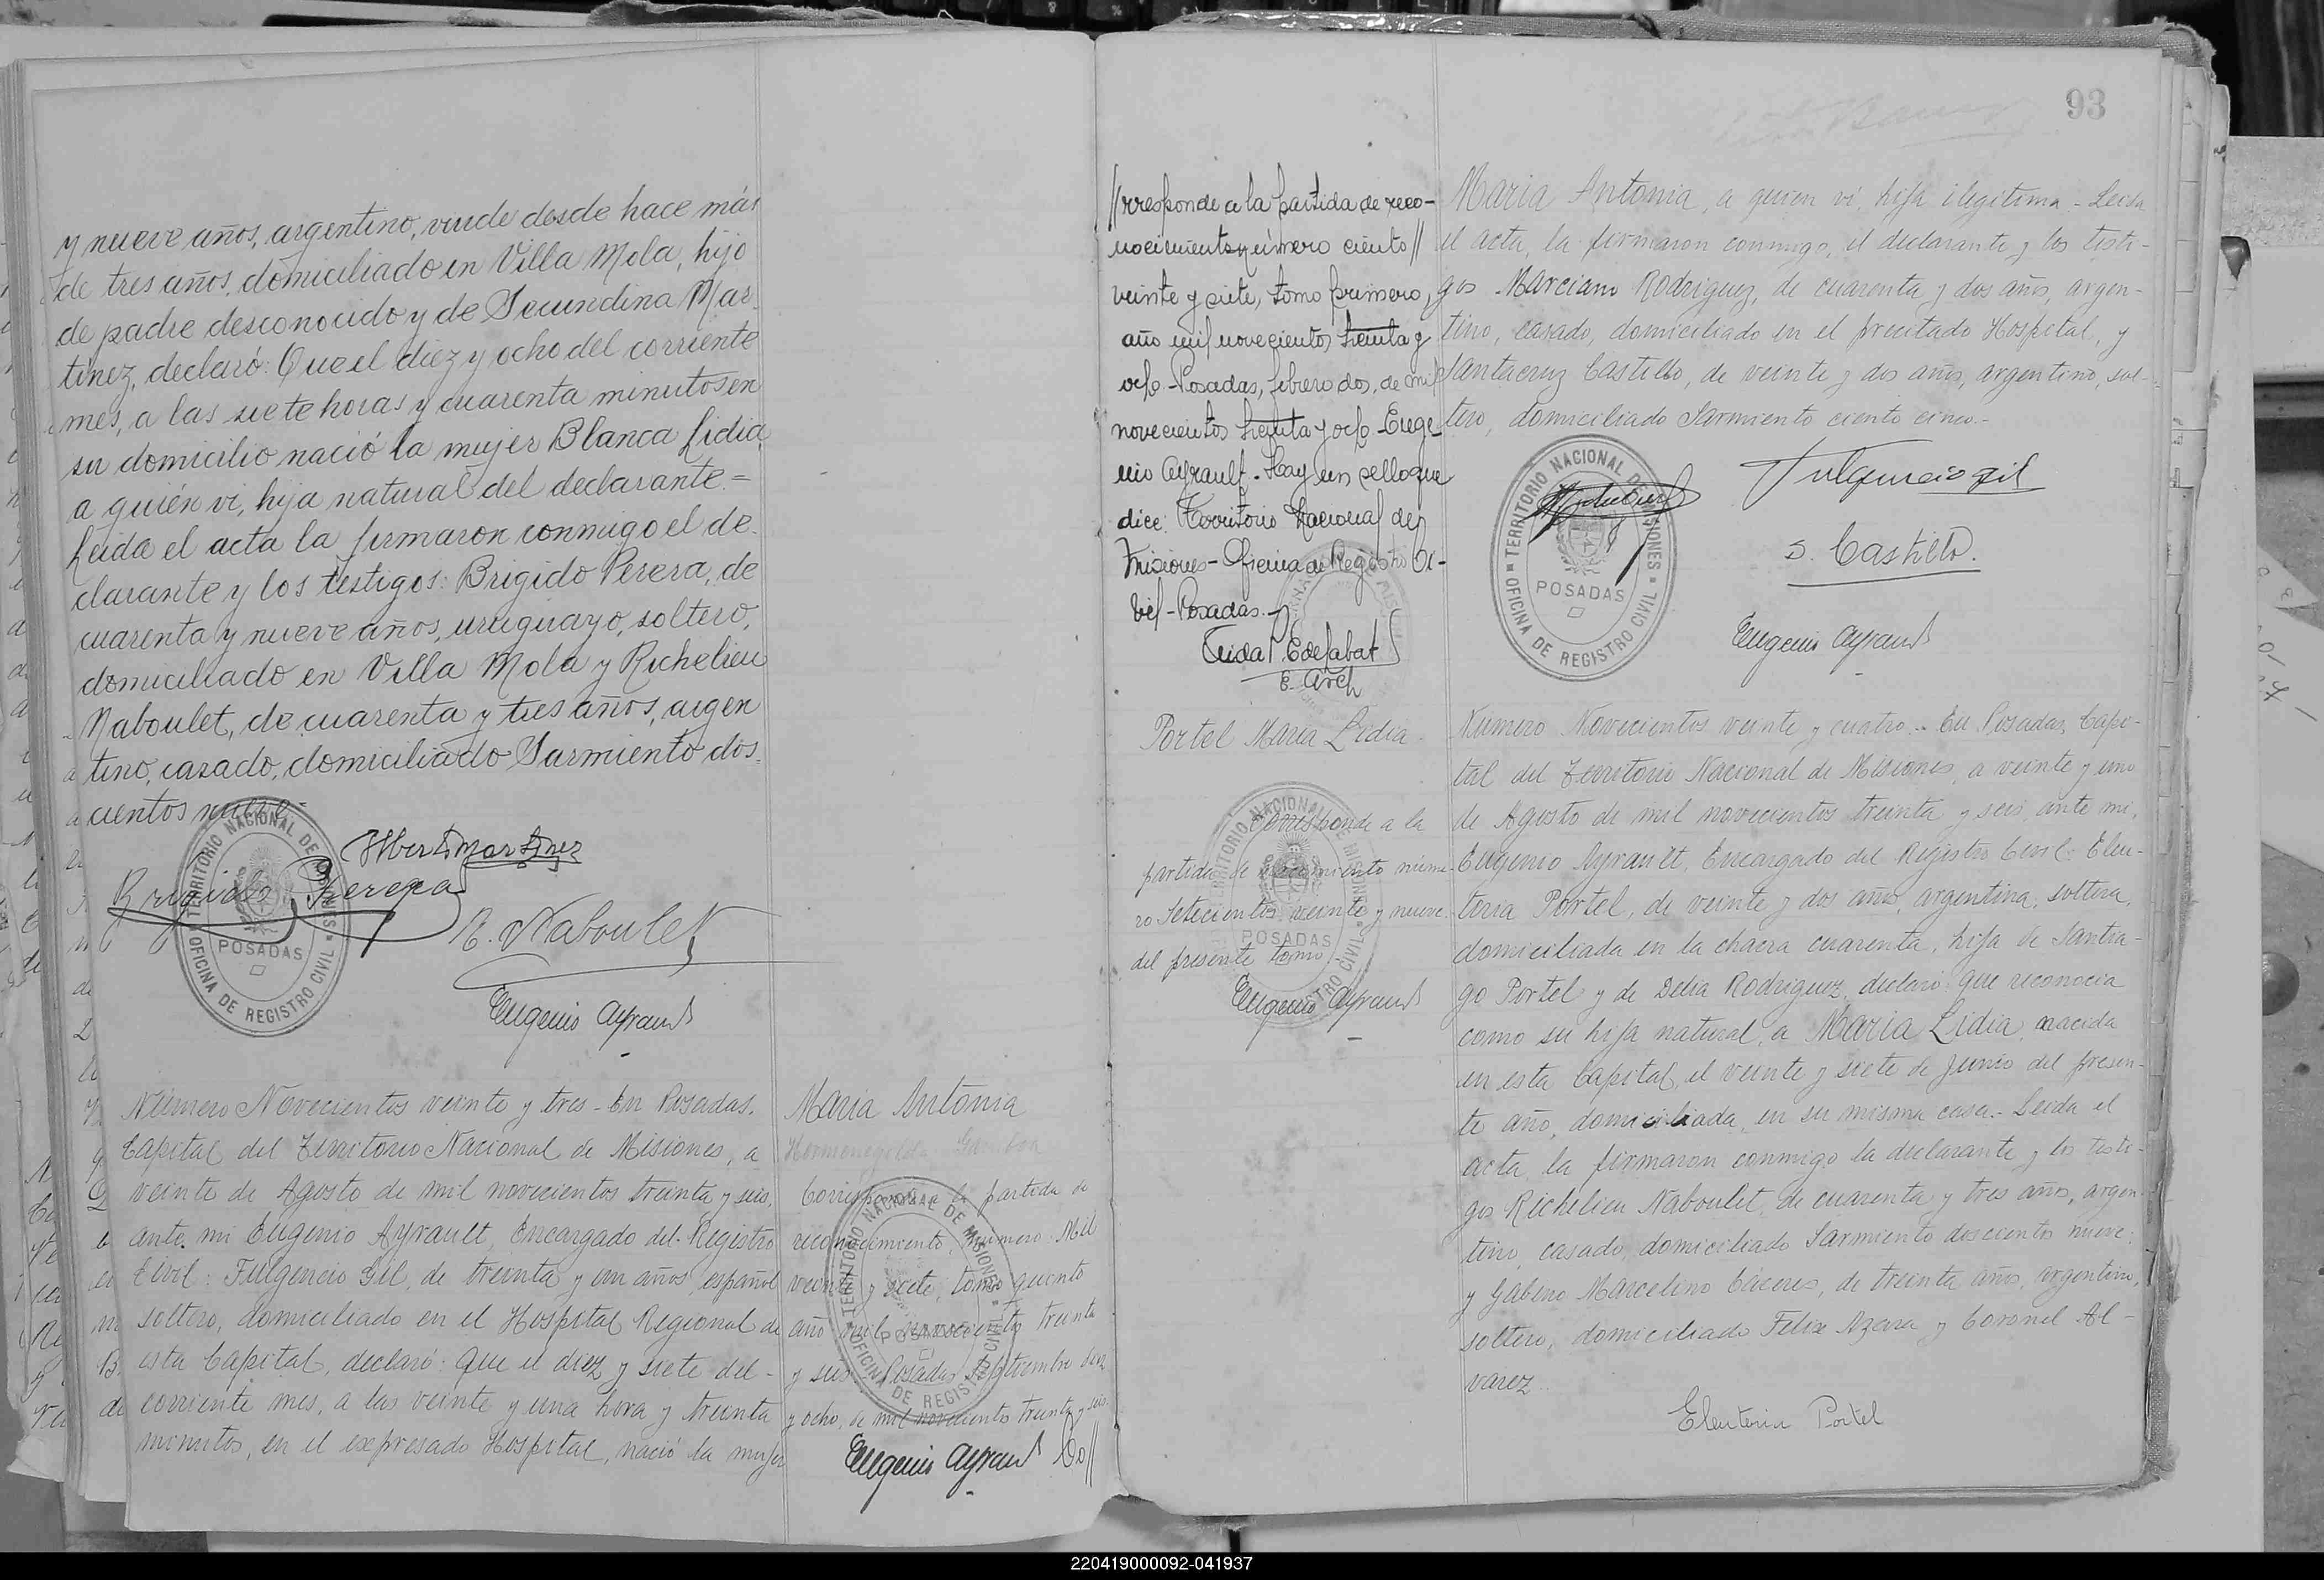 y nueve años, argentino, viudo desde hace más
de tres años, domiciliado en Villa Mola, hijo
de padre desconocido y de Secundina Mar-
tinez, declaró: Que el diez y ocho del corriente
mes, a las siete horas y cuarenta minutos en
su domicilio nació la mujer Blanca Lidia,
a quién vi, hija natural del declarante.=
Leida el acta la firmaron conmigo el de-
clarante y los testigos: Brigido Perera, de
cuarenta y nueve años, uruguayo, soltero,
domiciliado en Villa Mola y Richelieu
Naboulet, de cuarenta y tres años, argen
tino, casado, domiciliado Sarmiento dos-
cientos nueve.-
TERRITORIO NACIONAL DE MISIONES
POSADAS
OFICINA DE REGISTRO CIVIL
Brigido Perera
R. Naboulet
Eugenio Ayrault
Número Novecientos veinte y tres - En Posadas,
Capital del Territorio Nacional de Misiones, a
veinte de Agosto de mil novecientos treinta y seis,
ante mi Eugenio Ayrault, Encargado del Registro
Civil: Fulgencio Gil, de treinta y un años, español
soltero, domiciliado en el Hospital Regional de
esta Capital, declaró: que el diez y siete del -
corriente mes, a las veinte y una hora y treinta
minutos, en el expresado Hospital, nació la mujer
Maria Antonia
Hermenegilda Gamboa
Corresponde a la partida de
reconocimiento, número Mil
veinte y siete, tomo quinto
año mil novecientos treinta
y seis. Posadas Septiembre diez
y ocho, de mil novecientos treinta y seis.
Eugenio Ayrault Co//
TERRITORIO NACIONAL DE MISIONES
POSADAS
OFICINA DE REGISTRO CIVIL
93
//rresponde a la partida de reco-
nocimiento número ciento //
veinte y siete, tomo primero,
año mil novecientos treinta y
ocho - Posadas, febrero dos, de mil
novecientos treinta y ocho - Euge
nio Ayrault - Hay un sello que
dice: Territorio Nacional de
Misiones - Oficina de Registro Ci-
vil - Posadas.-
Maria Antonia, a quien vi, hija ilegitima - Leida
el acta, la firmaron conmigo, el declarante y los testi-
gos Marciano Rodriguez, de cuarenta y dos años, argen-
tino, casado, domiciliado en el precitado Hospital, y
Santacruz Castillo, de veinte y dos años, argentino, sol-
tero, domiciliado Sarmiento ciento cinco.-
TERRITORIO NACIONAL DE MISIONES
POSADAS
OFICINA DE REGISTRO CIVIL
Fulgencio gil
S. Castillo.
Eugenio Ayrault
Portel Maria Lidia.
Corresponde a la
partida de nacimiento núme-
ro Setecientos veinte y nueve
del presente tomo
Eugenio Ayrault
TERRITORIO NACIONAL DE MISIONES
POSADAS
Número Novecientos veinte y cuatro.. En Posadas, Capi-
tal del Territorio Nacional de Misiones, a veinte y uno
de Agosto de mil novecientos treinta y seis, ante mi,
Eugenio Ayrault, Encargado del Registro Civil: Eleu-
teria Portel, de veinte y dos años, argentina, soltera,
domiciliada en la chacra cuarenta, hija de Santia-
go Portel y de Delia Rodriguez, declaró: que reconocia
como su hija natural, a Maria Lidia, nacida
en esta Capital, el veinte y siete de Junio del presen-
te año, domiciliada, en su misma casa.- Leida el
acta, la firmaron conmigo la declarante y los testi-
gos Richelieu Naboulet, de cuarenta y tres años, argen-
tino, casado, domiciliado Sarmiento doscientos nueve;
y Gabino Marcelino Cáceres, de treinta años, argentino,
soltero, domiciliado Felix Azara y Coronel Al-
varez..
Eleuteria Portel
220419000092-041937